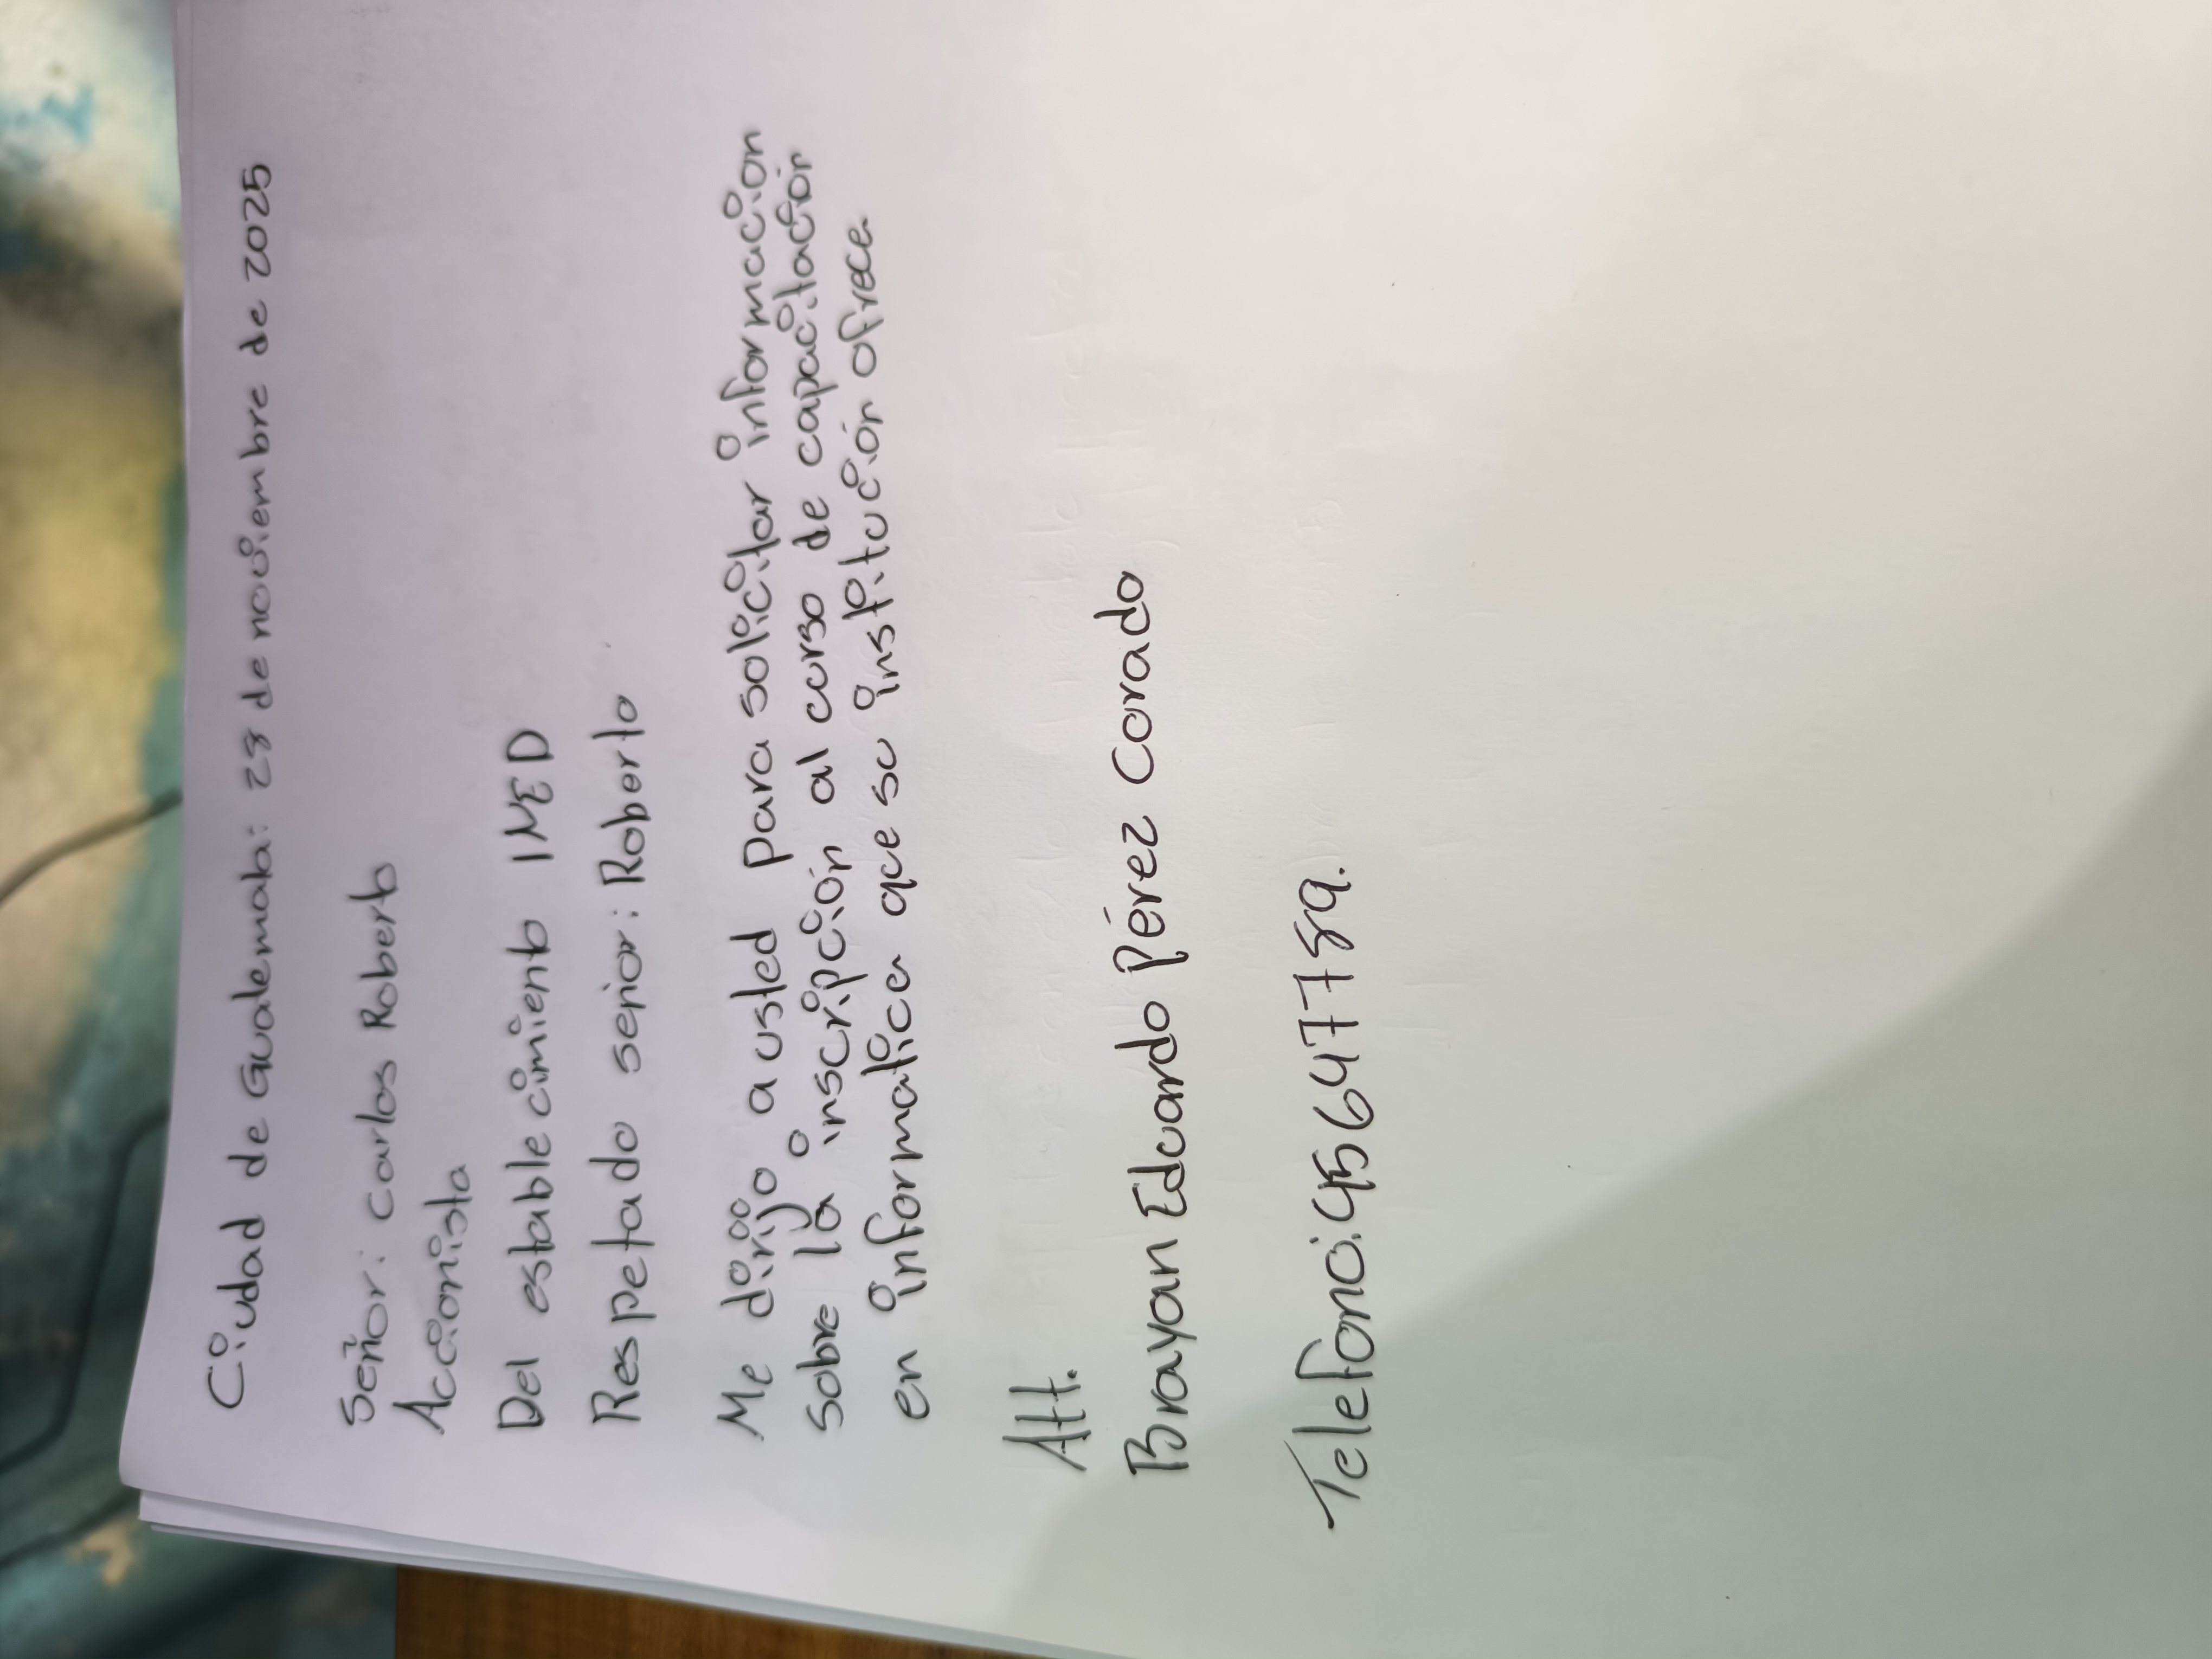 Ciudad de Guatemala: 28 de noviembre de 2025
Señor: carlos Roberto
Accionista
Del establecimiento INED
Respetado señor: Roberto
Me dirijo a usted para solicitar información
sobre la inscripción al curso de capacitación
en informatica que su institución ofrece
Att.
Brayan Eduardo Pérez Corado
Telefono: